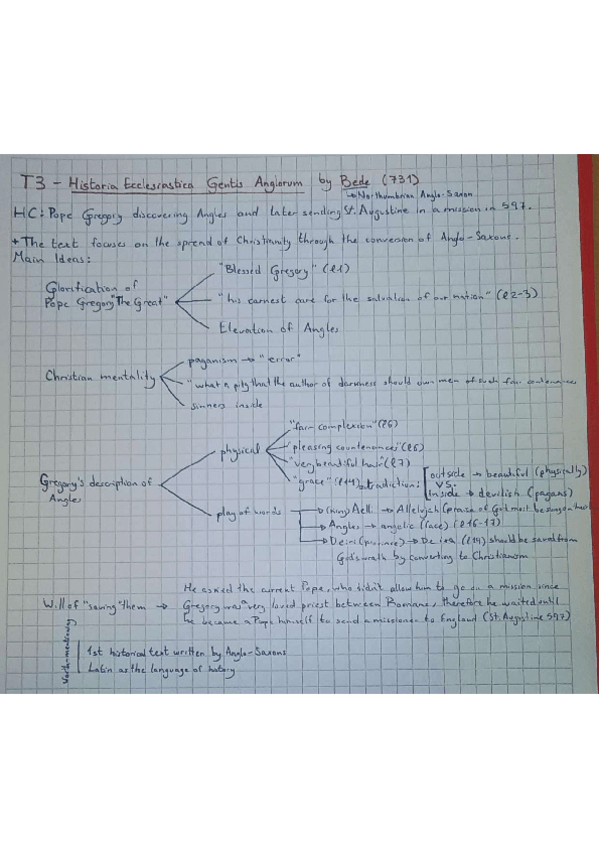 T3 - Historia Ecclesiastica Gentis Anglorum by Bede (731)
↳ Northumbrian Anglo-Saxon
HC: Pope Gregory discovering Angles and later sending St. Augustine in a mission in 597.
+ The text focuses on the spread of Christianity through the conversion of Anglo-Saxons.
Main Ideas:
Glorification of Pope Gregory "The Great"
"Blessed Gregory" (l1)
"his earnest care for the salvation of our nation" (l2-3)
Elevation of Angles
Christian mentality
paganism → "error"
"what a pity that the author of darkness should own men of such fair contenances
sinners inside
Gregory's description of Angles
physical
"fair complexion" (l6)
"pleasing countenances" (l6)
"very beautiful hair" (l7)
"grace" (l14)
outside → beautiful (physically)
VS.
inside → devilish (pagans)
play of words
(king) Aelle → Alleluiah (praise of God must be sung in their
Angles → angelic (face) (l16-17)
Deiri (province) → De ira (l19) should be saved from
God's wrath by converting to Christianism
Will of "saving" them →
He asked the current Pope, who didn't allow him to go on a mission since
Gregory was a very loved priest between Romans, therefore he waited until
he became a Pope himself to send a missioner to England (St. Augustine 597)
Worth-mentioning
1st historical text written by Anglo-Saxons
Latin as the language of history